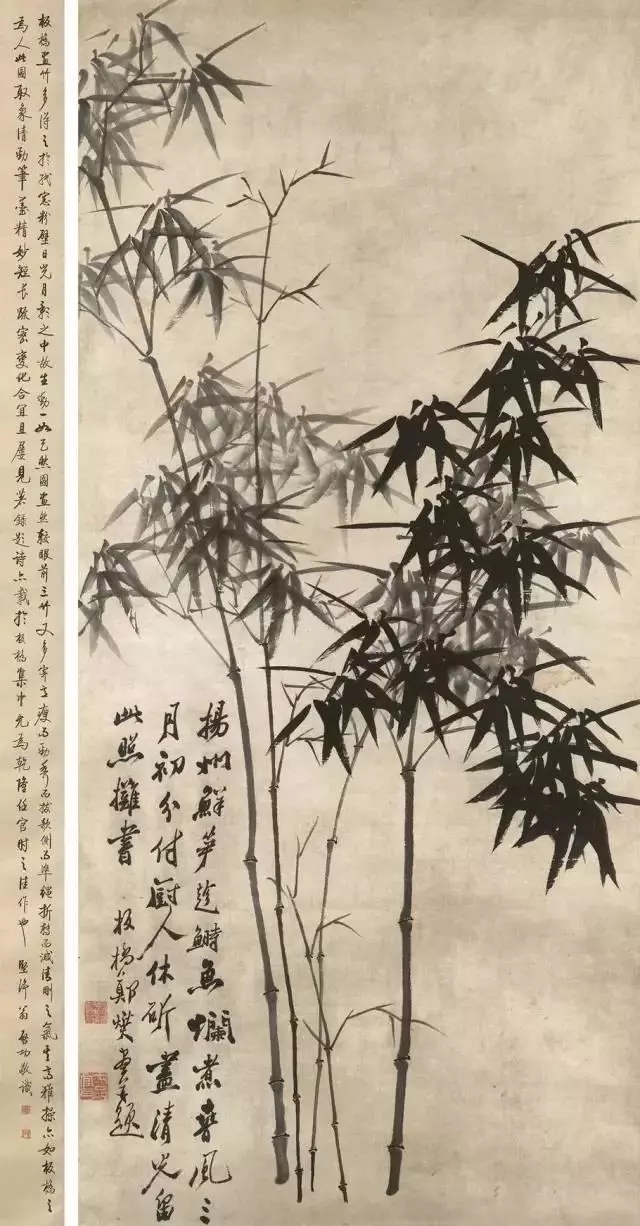 揚州鮮笋趂鰣魚爛煮春風三
月初分付廚人休斫盡清光留
此照攤書 板橋鄭燮畫并題
板橋畫竹多得之於紙窓粉壁日光月影之中故生動一如天然圖畫然較眼前之竹又多寫其瘦而勁秀而拔欹側而準繩折轉而清剛之氣其高雅操亦如板橋之
為人此圖取象清勁筆墨精妙短長疏密變化合宜且屢見著錄題詩亦載於板橋集中尤為乾隆任官時之佳作也 堅淨翁啟功敬識